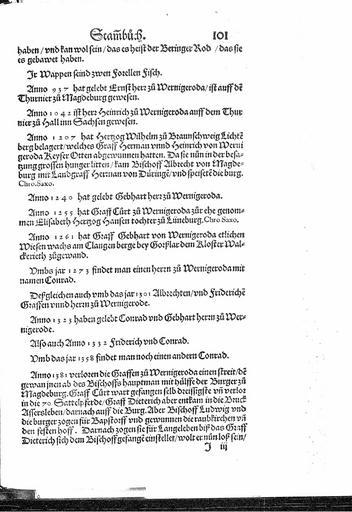 Stam̄bůch. 101
haben / vnd kan wol sein / das es heist der Beringer Rod / das sie
es gebawet haben.
Ir Wappen seind zwen Forellen Fisch.
Anno 937 hat gelebt Ernst herr zů Wernigeroda / ist auff dē
Thurnier zů Magdeburg gewesen.
Anno 1042 ist herr Heinrich zů Wernigeroda auff dem Thur
nier zů Hall inn Sachsen gewesen.
Anno 1207 hat Hertzog Wilhelm zů Braunschweig Lichtē
berg belagert / welches Graff Herman vnnd Heinrich von Werni
geroda / Keyser Otten abgewunnen hatten. Da sie nůn in der besa-
tzung grossen hunger litten / kam Bischoff Albrecht von Magde-
burg mit Landgraff Herman von Düringē / vnd speisetē die burg.
Chro. Saxo.
Anno 1240 hat gelebt Gebhart herr zů Wernigeroda.
Anno 1259 hat Graff Cůrt zů Wernigeroda zůr ehe genom-
men Elisabeth Hertzog Hansen tochter zů Lüneburg. Chro. Saxo.
Anno 1261 hat Graff Gebhart von Wernigeroda etlichen
Wiesen wachs am Clangen berge bey Goslar dem Kloster Wal-
ckerieth zůgewand.
Vmbs jar 1273 findet man einen herrn zů Wernigeroda mit
namen Conrad.
Deßgleichen auch vmb das jar 1301 Albrechten / vnd Friderichē
Graffen vnnd herrn zů Wernigerode.
Anno 1323 haben gelebt Conrad vnd Gebhart herrn zů Wer-
nigerode.
Also auch Anno 1332 Friderich vnd Conrad.
Vmb das jar 1358 findet man noch einen andern Conrad.
Anno 1381 verloren die Graffen zů Wernigeroda einen streit / dē
gewan jnen ab des Bischoffs hauptman mit hülffe der Burger zů
Magdeburg. Graff Cůrt wart gefangen selb dreissigste vñ verlor
in die 70 Sattelpferde / Graff Dieterich aber entkam in die Bruck
Assersleben / darnach auff die Burg. Aber Bischoff Ludwig vnd
die burger zogen für Bapstorff vnd gewunnen die raubkirchen vñ
den festen hoff. Darnach zogen sie für Langeleben biß das Graff
Dieterich sich dem Bischoff gefangē einstellet / wolt er nůn loß sein /
J iij